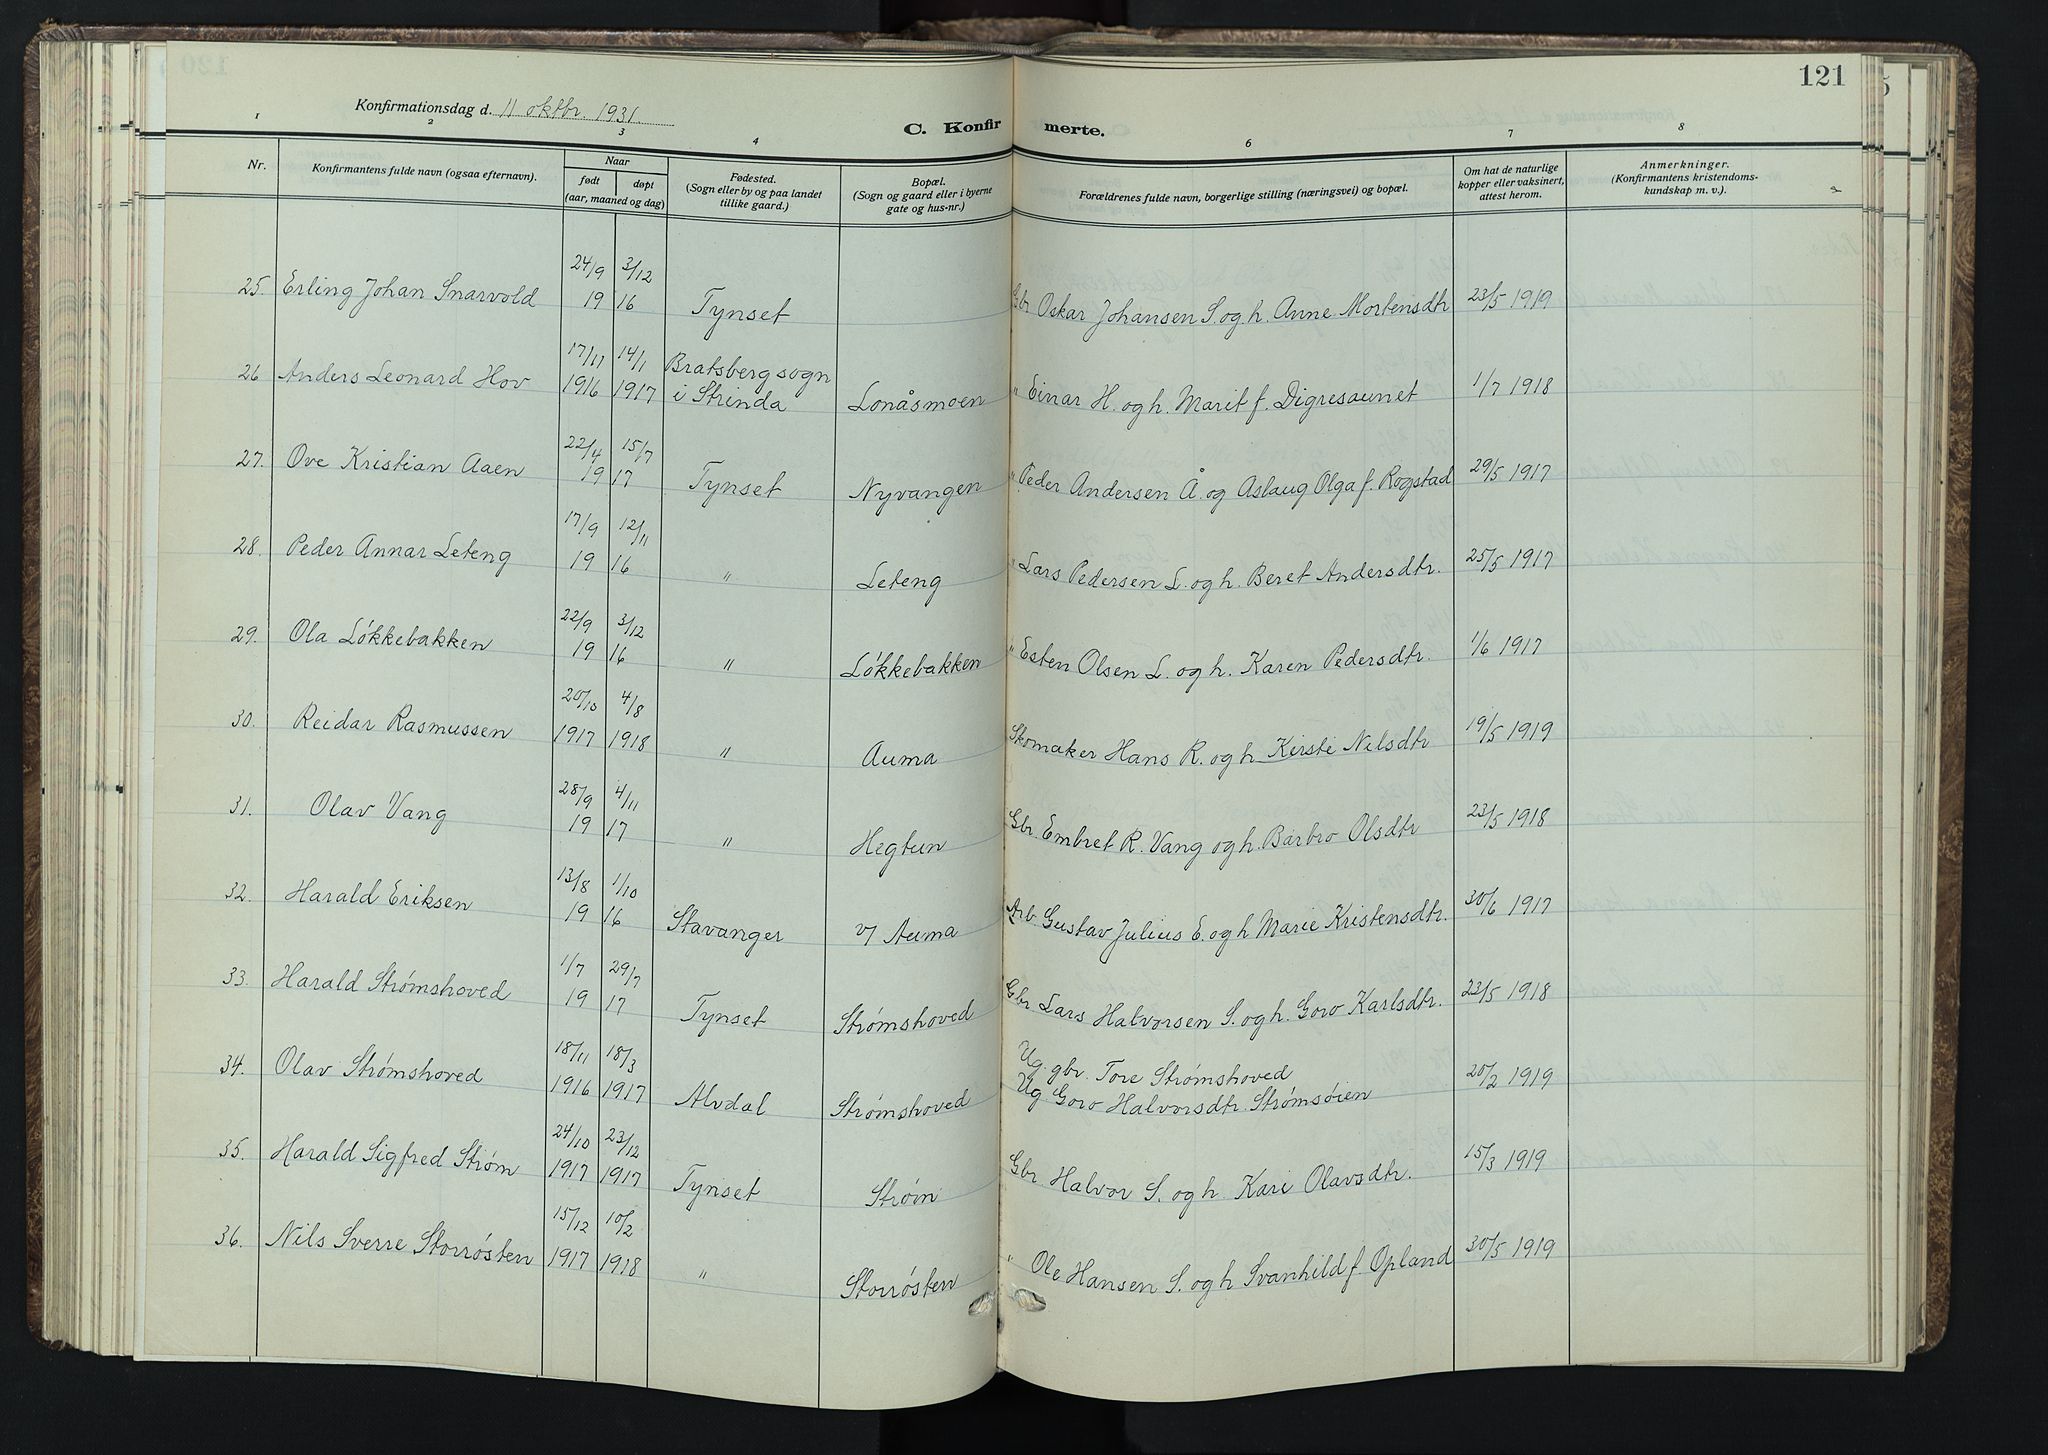 121
Konfirmationsdag d. 11 oktbr. 1931.
C. Konfirmerte.
1 2 3 4 6 7 8
Nr. Konfirmantens fulde navn (ogsaa efternavn). Naar født døpt (aar, maaned og dag) Fødested. (Sogn eller by og paa landet tillike gaard.) Bopæl. (Sogn og gaard eller i byerne gate og hus-nr.) Forældrenes fulde navn, borgerlige stilling (næringsvei) og bopæl. Om hat de naturlige kopper eller vaksinert, attest herom. Anmerkninger. (Konfirmantens kristendomskundskap m. v.).
25. Erling Johan Snarvold 24/9 3/12 19 16 Tynset Gbr Oskar Johansen S. og h. Anne Mortensdtr 23/5 1919
26 Anders Leonard Hov 17/11 1916 14/1 1917 Bratsberg sogn i Strinda Lonåsmoen " Einar H. og h. Marit f. Digresaunet 1/7 1918
27. Ove Kristian Aaen 22/4 15/7 19 17 Tynset Nyvangen " Peder Andersen Å og Aslaug Olga f. Rogstad 29/5 1917
28. Peder Annar Leteng 17/9 12/11 19 16 " Leteng " Lars Pedersen L. og h. Beret Andersdtr. 25/5 1917
29. Ola Løkkebakken 22/9 3/12 19 16 " Løkkebakken " Esten Olsen L. og h. Karen Pedersdtr. 1/6 1917
30. Reidar Rasmussen 20/10 1917 4/8 1918 " Auma Skomaker Hans R. og h Kirsti Nilsdtr 19/5 1919
31. Olav Vang 28/9 4/11 19 17 " Hegtun Gbr. Embret R. Vang og h. Barbro Olsdtr 23/5 1918
32. Harald Eriksen 13/8 1/10 19 16 Stavanger v/ Auma Arb. Gustav Julius E. og h Marie Kristensdtr. 30/6 1917
33. Harald Strømshoved 1/7 29/7 19 17 Tynset Strømshoved Gbr Lars Halvorsen S. og h. Goro Karlsdtr. 23/5 1918
34. Olav Strømshoved 18/11 1916 18/3 1917 Alvdal Strømshoved Ug. gbr. Tore Strømshoved
Ug Goro Halvorsdtr. Strømsøien 20/2 1919
35. Harald Sigfred Strøm 24/10 1917 23/12 1917 Tynset Strøm Gbr Halvor S. og h Kari Olavsdtr. 15/3 1919
36. Nils Sverre Storrøsten 15/12 1917 10/2 1918 " Storrøsten " Ole Hansen S. og h Svanhild f. Opland 30/5 1919